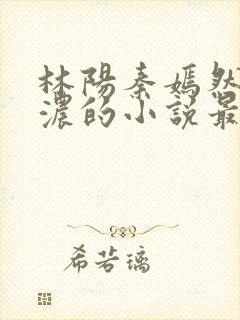 林陽秦嫣然
濃的小說最
希若璃